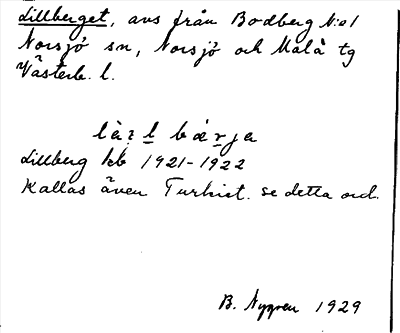 Lillberget, avs från Bodberg N:o 1
Norsjö sn, Norsjö och Malå tg
Västerb. l.
Lillberg kb 1921-1922
Kallas även Turkiet. se detta ord.
B. Nygren 1929